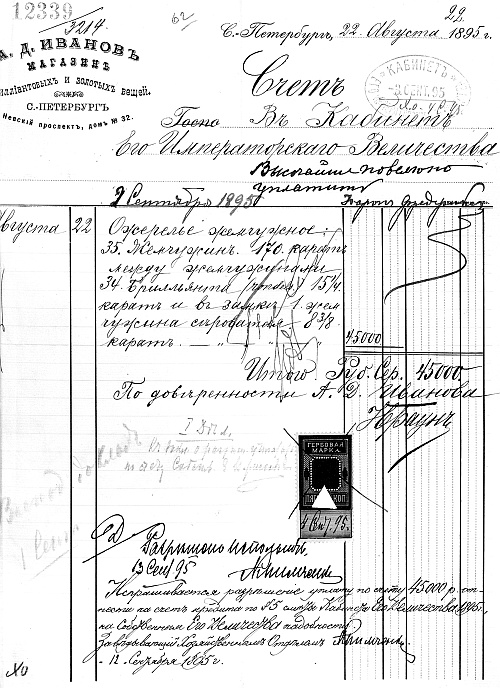 12339
3214.
62
22
С.-Петербургъ, 22 Августа 1895 г.
А. Д. ИВАНОВЪ
МАГАЗИНЪ
БРИЛЛІАНТОВЫХЪ И ЗОЛОТЫХЪ ВЕЩЕЙ.
С.-ПЕТЕРБУРГЪ
Невскій проспектъ, домъ № 32.
КАБИНЕТЪ
СЕНТ. 95
Счетъ
Въ Кабинетъ
Его Императорскаго Величества
Высочайше повелено
уплатить
9 Сентября 1895
Баронъ Фредериксъ
Августа 22 Ожерелье жемчужное:
35. Жемчужинъ. 170. каратъ
между жемчугами
34. Брилліянта 15 1/4
каратъ и въ замкѣ 1. жем
чужина 8 3/8
каратъ. — „ — „ 45000
Итого Руб. Сер. 45000.
По довѣренности А. Д. Иванова
ГЕРБОВАЯ
МАРКА
ПЯТЬ КОП
4 Сент. 95.
13 Сент 95
Испрашивается разрѣшеніе уплату по счету 45000 р. от-
нести на счетъ кредита по § 5 смѣты Кабинета Его Величества 1895 г.
на Собственныя Его Величества надобности
Завѣдывающій Хозяйственнымъ Отдѣломъ
12 Сентября 1895 г.